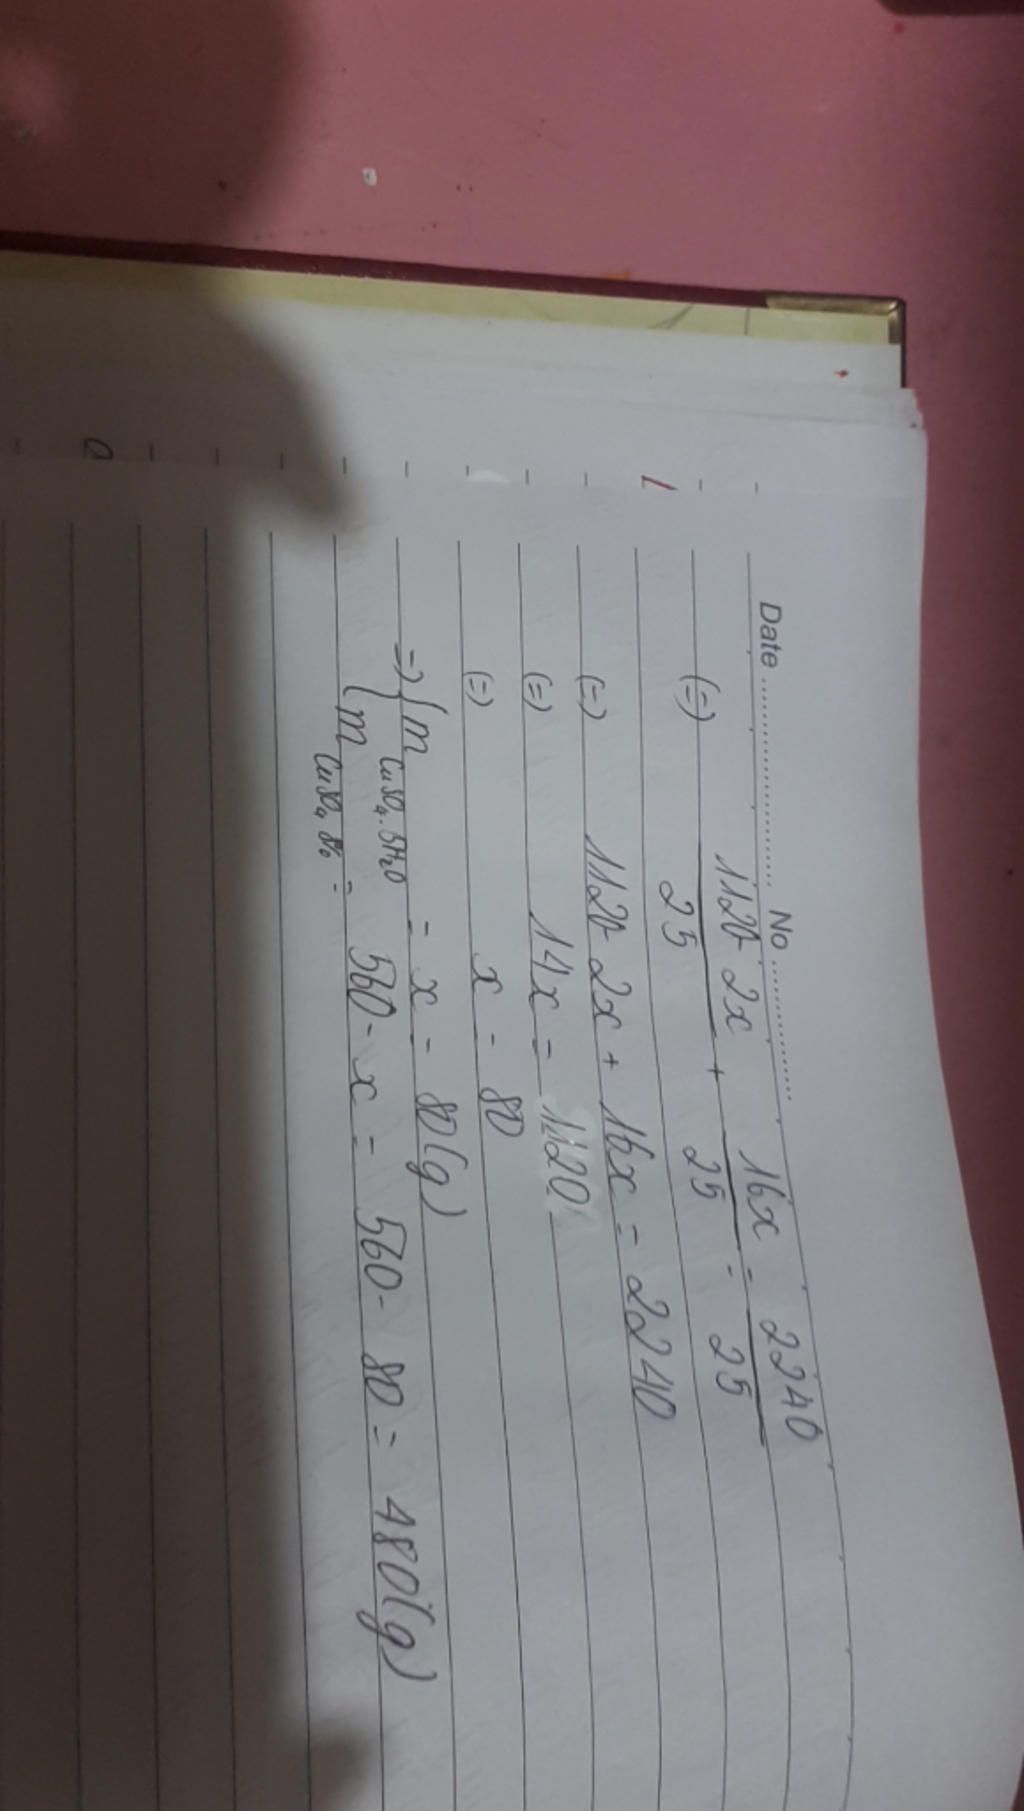 Date ........................ No ........................
(=) 1120 - 2x / 25 + 16x / 25 = 2240 / 25
(=) 1120 - 2x + 16x = 2240
(=) 14x = 1120
(=) x = 80
=> { m CuSO4.5H2O = x = 80 (g)
m CuSO4 8% = 560 - x = 560 - 80 = 480 (g)